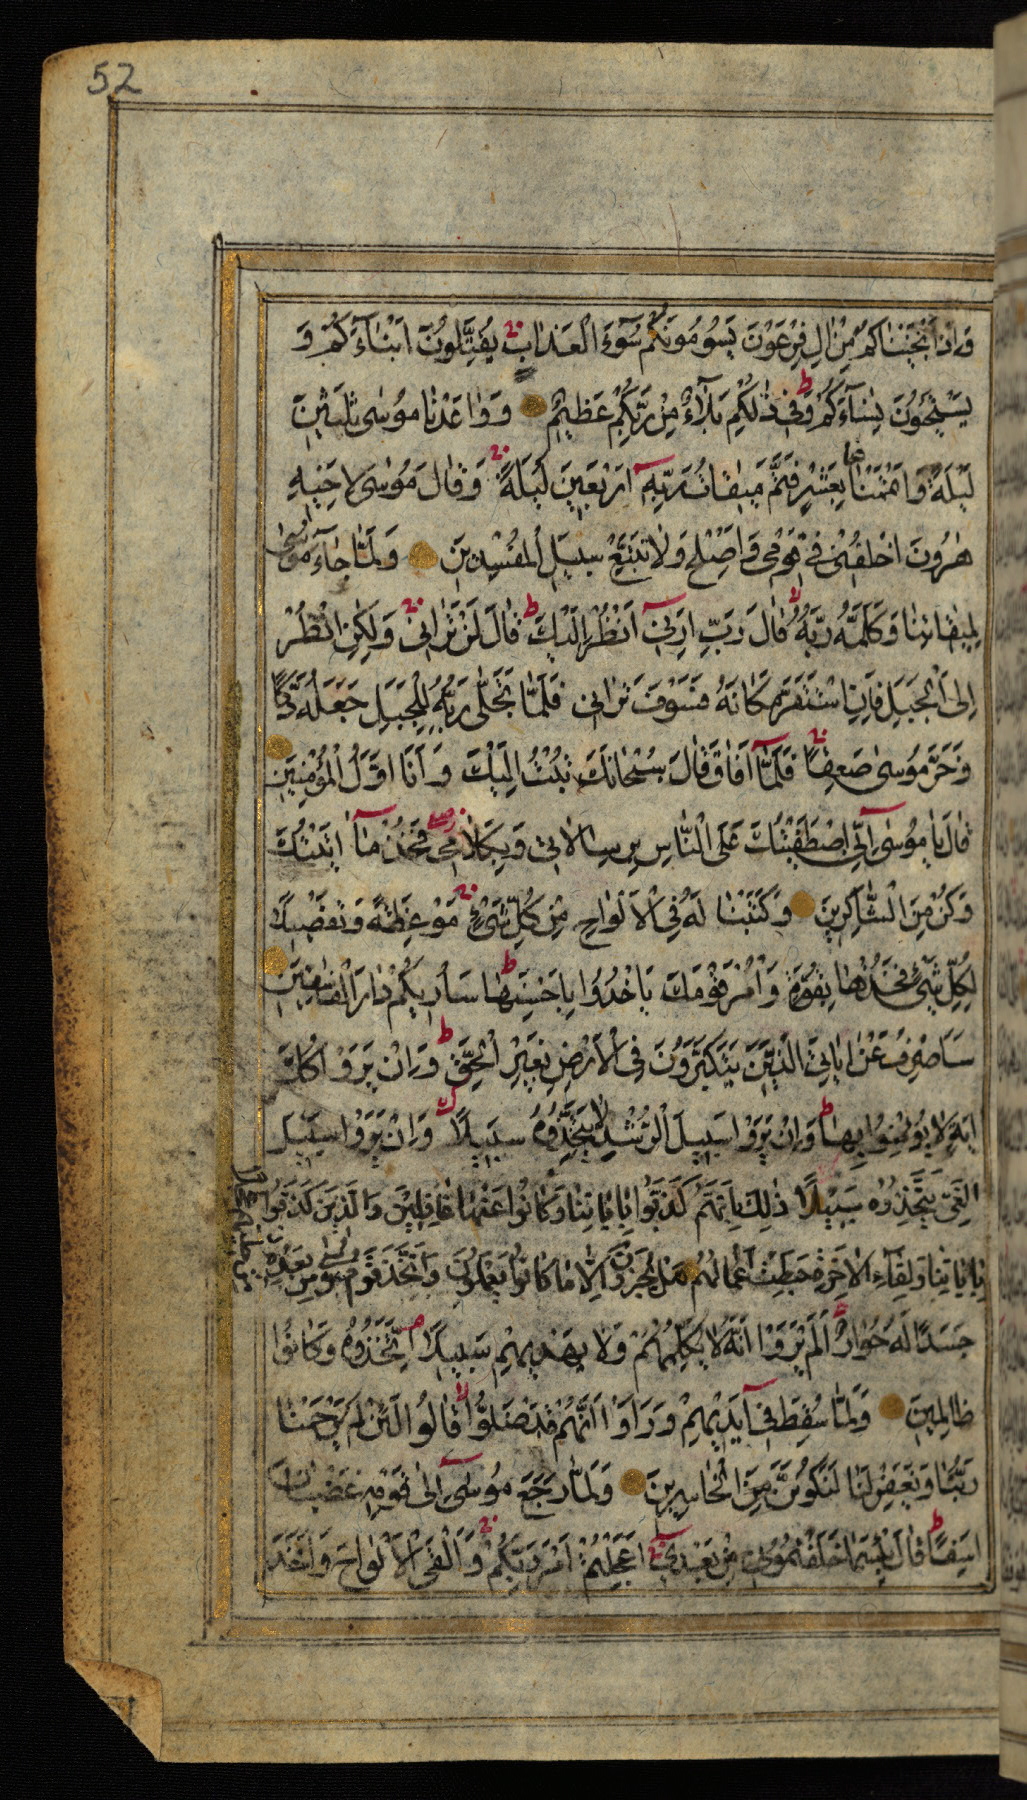 52
وَاِذْ اَنْجَيْنَاكُمْ مِنْ اٰلِ فِرْعَوْنَ يَسُومُونَكُمْ سُوٓءَ الْعَذَابِ يُقَتِّلُونَ اَبْنَآءَكُمْ وَ
يَسْتَحْيُونَ نِسَآءَكُمْ وَفِي ذٰلِكُمْ بَلَآءٌ مِنْ رَبِّكُمْ عَظِيمٌ وَوَاعَدْنَا مُوسٰى ثَلٰثِينَ
لَيْلَةً وَاَتْمَمْنَاهَا بِعَشْرٍ فَتَمَّ مِيقَاتُ رَبِّهٖٓ اَرْبَعِينَ لَيْلَةً وَقَالَ مُوسٰى لِاَخِيهِ
هٰرُونَ اخْلُفْنِي فِي قَوْمِي وَاَصْلِحْ وَلَا تَتَّبِعْ سَبِيلَ الْمُفْسِدِينَ وَلَمَّا جَآءَ مُوسٰى
لِمِيقَاتِنَا وَكَلَّمَهُ رَبُّهُ قَالَ رَبِّ اَرِنِيٓ اَنْظُرْ اِلَيْكَ قَالَ لَنْ تَرٰانِي وَلٰكِنِ انْظُرْ
اِلَى الْجَبَلِ فَاِنِ اسْتَقَرَّ مَكَانَهُ فَسَوْفَ تَرٰانِي فَلَمَّا تَجَلّٰى رَبُّهُ لِلْجَبَلِ جَعَلَهُ دَكًّا
وَخَرَّ مُوسٰى صَعِقًا فَلَمَّآ اَفَاقَ قَالَ سُبْحَانَكَ تُبْتُ اِلَيْكَ وَاَنَا اَوَّلُ الْمُؤْمِنِينَ
قَالَ يَا مُوسٰىٓ اِنِّي اصْطَفَيْتُكَ عَلَى النَّاسِ بِرِسَالَاتِي وَبِكَلَامِي فَخُذْ مَآ اٰتَيْتُكَ
وَكُنْ مِنَ الشَّاكِرِينَ وَكَتَبْنَا لَهُ فِي الْاَلْوَاحِ مِنْ كُلِّ شَيْءٍ مَوْعِظَةً وَتَفْصِيلًا
لِكُلِّ شَيْءٍ فَخُذْهَا بِقُوَّةٍ وَأْمُرْ قَوْمَكَ يَاْخُذُوا بِاَحْسَنِهَا سَاُرِيكُمْ دَارَ الْفَاسِقِينَ
سَاَصْرِفُ عَنْ اٰيَاتِيَ الَّذِينَ يَتَكَبَّرُونَ فِي الْاَرْضِ بِغَيْرِ الْحَقِّ وَاِنْ يَرَوْا كُلَّ
اٰيَةٍ لَا يُؤْمِنُوا بِهَا وَاِنْ يَرَوْا سَبِيلَ الرُّشْدِ لَا يَتَّخِذُوهُ سَبِيلًا وَاِنْ يَرَوْا سَبِيلَ
الْغَيِّ يَتَّخِذُوهُ سَبِيلًا ذٰلِكَ بِاَنَّهُمْ كَذَّبُوا بِاٰيَاتِنَا وَكَانُوا عَنْهَا غَافِلِينَ وَالَّذِينَ كَذَّبُوا
بِاٰيَاتِنَا وَلِقَآءِ الْاٰخِرَةِ حَبِطَتْ اَعْمَالُهُمْ هَلْ يُجْزَوْنَ اِلَّا مَا كَانُوا يَعْمَلُونَ وَاتَّخَذَ قَوْمُ مُوسٰى مِنْ بَعْدِهِ
مِنْ حُلِيِّهِمْ عِجْلًا
جَسَدًا لَهُ خُوَارٌ اَلَمْ يَرَوْا اَنَّهُ لَا يُكَلِّمُهُمْ وَلَا يَهْدِيهِمْ سَبِيلًا اِتَّخَذُوهُ وَكَانُوا
ظَالِمِينَ وَلَمَّا سُقِطَ فِيٓ اَيْدِيهِمْ وَرَاَوْا اَنَّهُمْ قَدْ ضَلُّوا قَالُوا لَئِنْ لَمْ يَرْحَمْنَا
رَبُّنَا وَيَغْفِرْ لَنَا لَنَكُونَنَّ مِنَ الْخَاسِرِينَ وَلَمَّا رَجَعَ مُوسٰىٓ اِلٰى قَوْمِهِ غَضْبَانَ
اَسِفًا قَالَ بِئْسَمَا خَلَفْتُمُونِي مِنْ بَعْدِيٓ اَعَجِلْتُمْ اَمْرَ رَبِّكُمْ وَاَلْقَى الْاَلْوَاحَ وَاَخَذَ